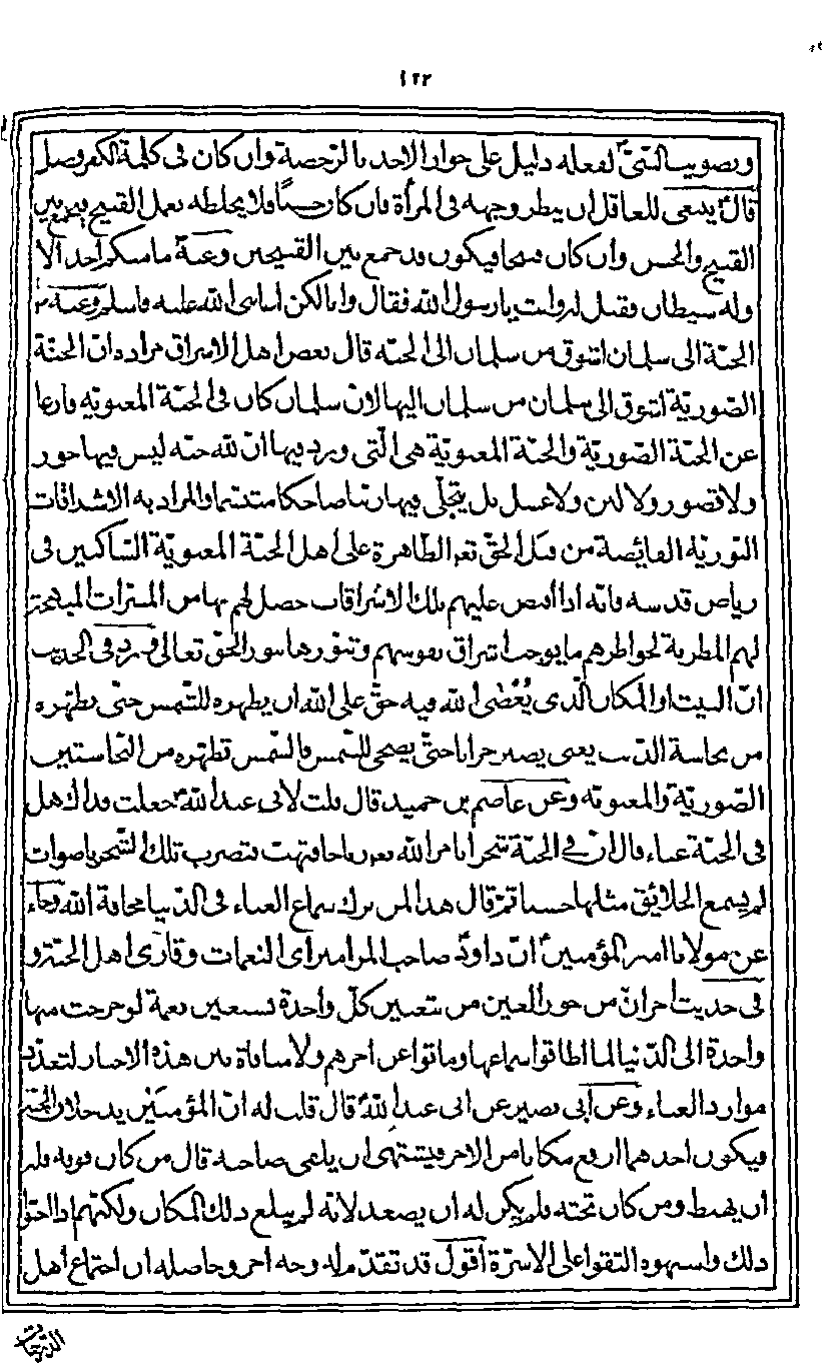 ١٢٢
وبصويب النبيّ لفعله دليل على جواز الاخذ بالرخصة وان كان في كلمة الكفر وصل
قال ينبغي للعاقل ان ينظر وجهه في المرأة فان كان حسنًا فلا يخلطه بعمل القبيح فيجمع بين
القبيح والحسن وان كان قبيحا فيكون قد جمع بين القبيحين وعنه ما منكم احد الا
وله شيطان فقيل له وانت يا رسول الله فقال وانا لكن اعانني الله عليه فاسلم وعنه
الجنّة الى سلمان اشوق من سلمان الى الجنّة قال بعض اهل الاشراق مراده انّ الجنّة
الصّوريّة اشوق الى سلمان من سلمان اليها لانّ سلمان كان في الجنّة المعنويّة فارغا
عن الجنّة الصّوريّة والجنّة المعنويّة هي الّتي ورد فيها انّ لله جنّة ليس فيها حور
ولا قصور ولا لبن ولا عسل بل يتجلّى فيها ربّنا ضاحكا متبسّما والمراد به الاشراقات
النّوريّة الفائضة من قبل الحقّ تعم الظاهرة على اهل الجنّة المعنويّة السّاكنين في
رياض قدسه فانه اذا افيض عليهم تلك الاشراقات حصل لهم بها من المسرّات المبهجة
لهم المطربة لخواطرهم ما يوجب اشراق نفوسهم وتنوّرها بنور الحقّ تعالى وورد في الحديث
انّ البيت او المكان الّذي يُعْصَى الله فيه حقّ على الله ان يطهره للشّمس حتّى يطهّره
من نجاسة الذّنب يعني يصير خرابا حتّى يضحى للشّمس فالشّمس تطهّره من النّجاستين
الصّوريّة والمعنويّة وعن عاصم بن حميد قال قلت لابي عبد الله جعلت فداك هل
في الجنّة غناء قال انّ في الجنّة شجرا يامر الله رياحا فتهب فتضرب تلك الشّجر باصوات
لم يسمع الخلائق مثلها حسنا ثمّ قال هذا لمن ترك سماع الغناء في الدّنيا مخافة الله وجاء
عن مولانا امير المؤمنين انّ داودّ صاحب المزامير اي النغمات وقارئ اهل الجنّة و
في حديث اخر انّ من حور العين من تتغنين كلّ واحدة بسبعين نغمة لو خرجت منها
واحدة الى الدّنيا لما اطاقوا سماعها وماتوا عن اخرهم ولا منافاة بين هذه الاخبار لتعدّد
موارد الغناء وعن أبي بصير عن ابي عبد الله قال قلت له انّ المؤمنَيْن يدخلان الجنّة
فيكون احدهما ارفع مكانا من الاخر فيشتهى ان يلقى صاحبه قال من كان فوقه فله
ان يهبط ومن كان تحته فلم يكن له ان يصعد لانّه لم يبلغ ذلك المكان ولكنّهم اذا احبّوا
ذلك واشتهوه التقوا على الاسرّة أقول قد تقدّم له وجه اخر وحاصله ان اجتماع اهل
الدّرجات